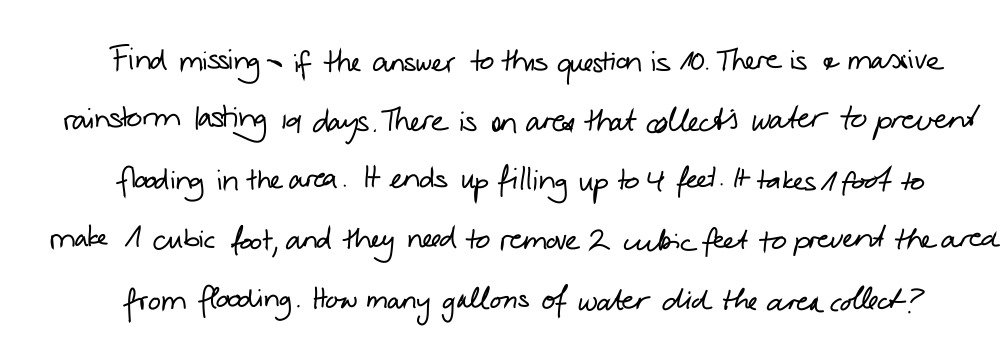 Find missing ~ if the answer to this question is 10. There is a massive
rainstorm lasting 19 days. There is an area that collects water to prevent
flooding in the area. It ends up filling up to 4 feet. It takes 1 foot to
make 1 cubic foot, and they need to remove 2 cubic feet to prevent the area
from flooding. How many gallons of water did the area collect?